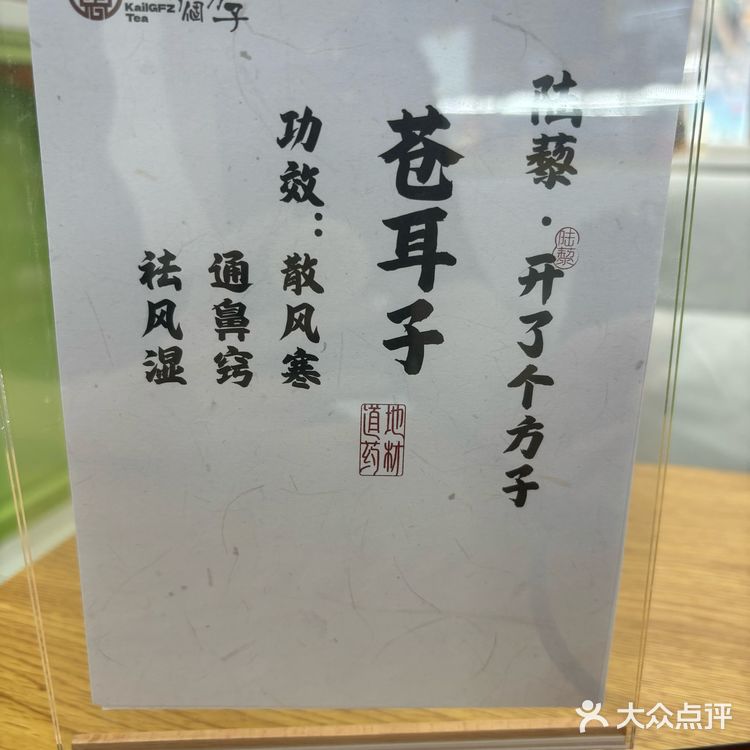 KailGFZ
Tea
陆藜·开了个方子
陆藜
苍耳子
地材
道药
功效：散风寒
通鼻窍
祛风湿
大众点评